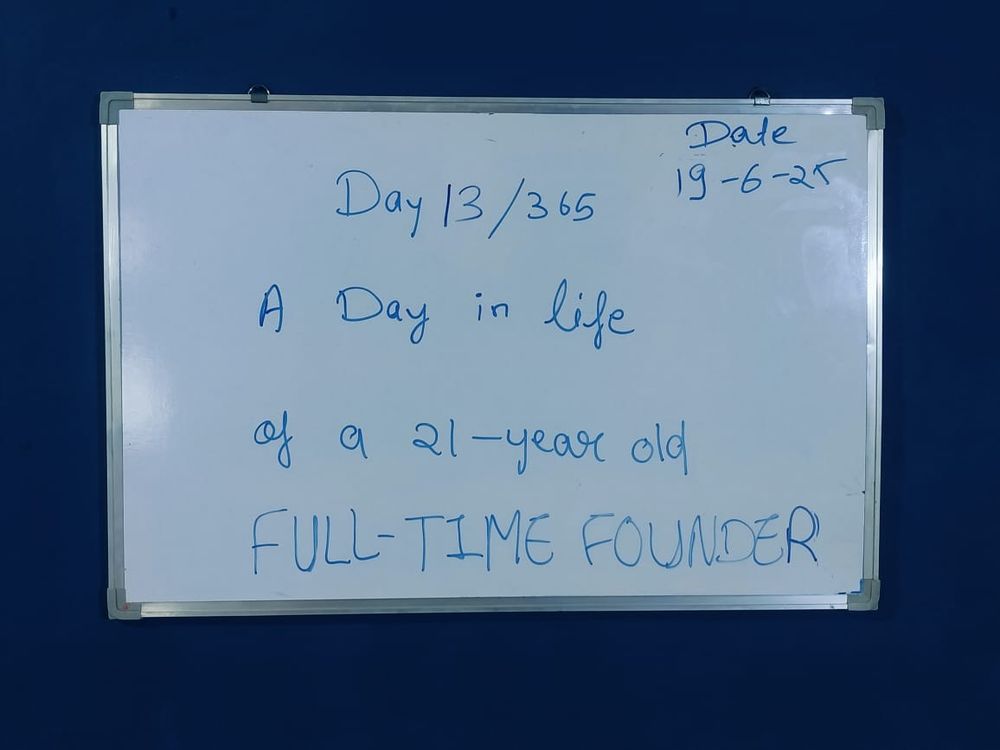 Date
19-6-25
Day 13/365
A Day in life
of a 21-year old
FULL-TIME FOUNDER